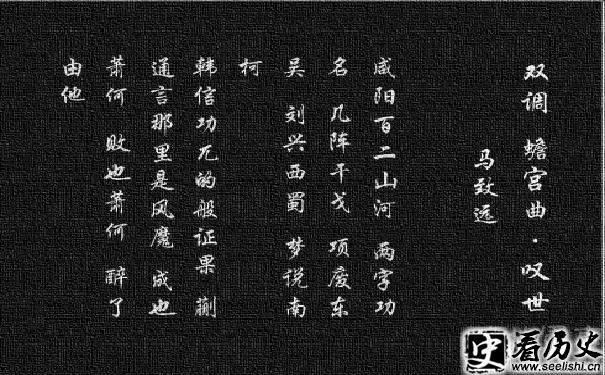 双调 蟾宫曲·叹世
马致远
咸阳百二山河 两字功
名 几阵干戈 项废东
吴 刘兴西蜀 梦说南
柯
韩信功兀的般证果 蒯
通言那里是风魔 成也
萧何 败也萧何 醉了
由他
看历史
www.seelishi.cn